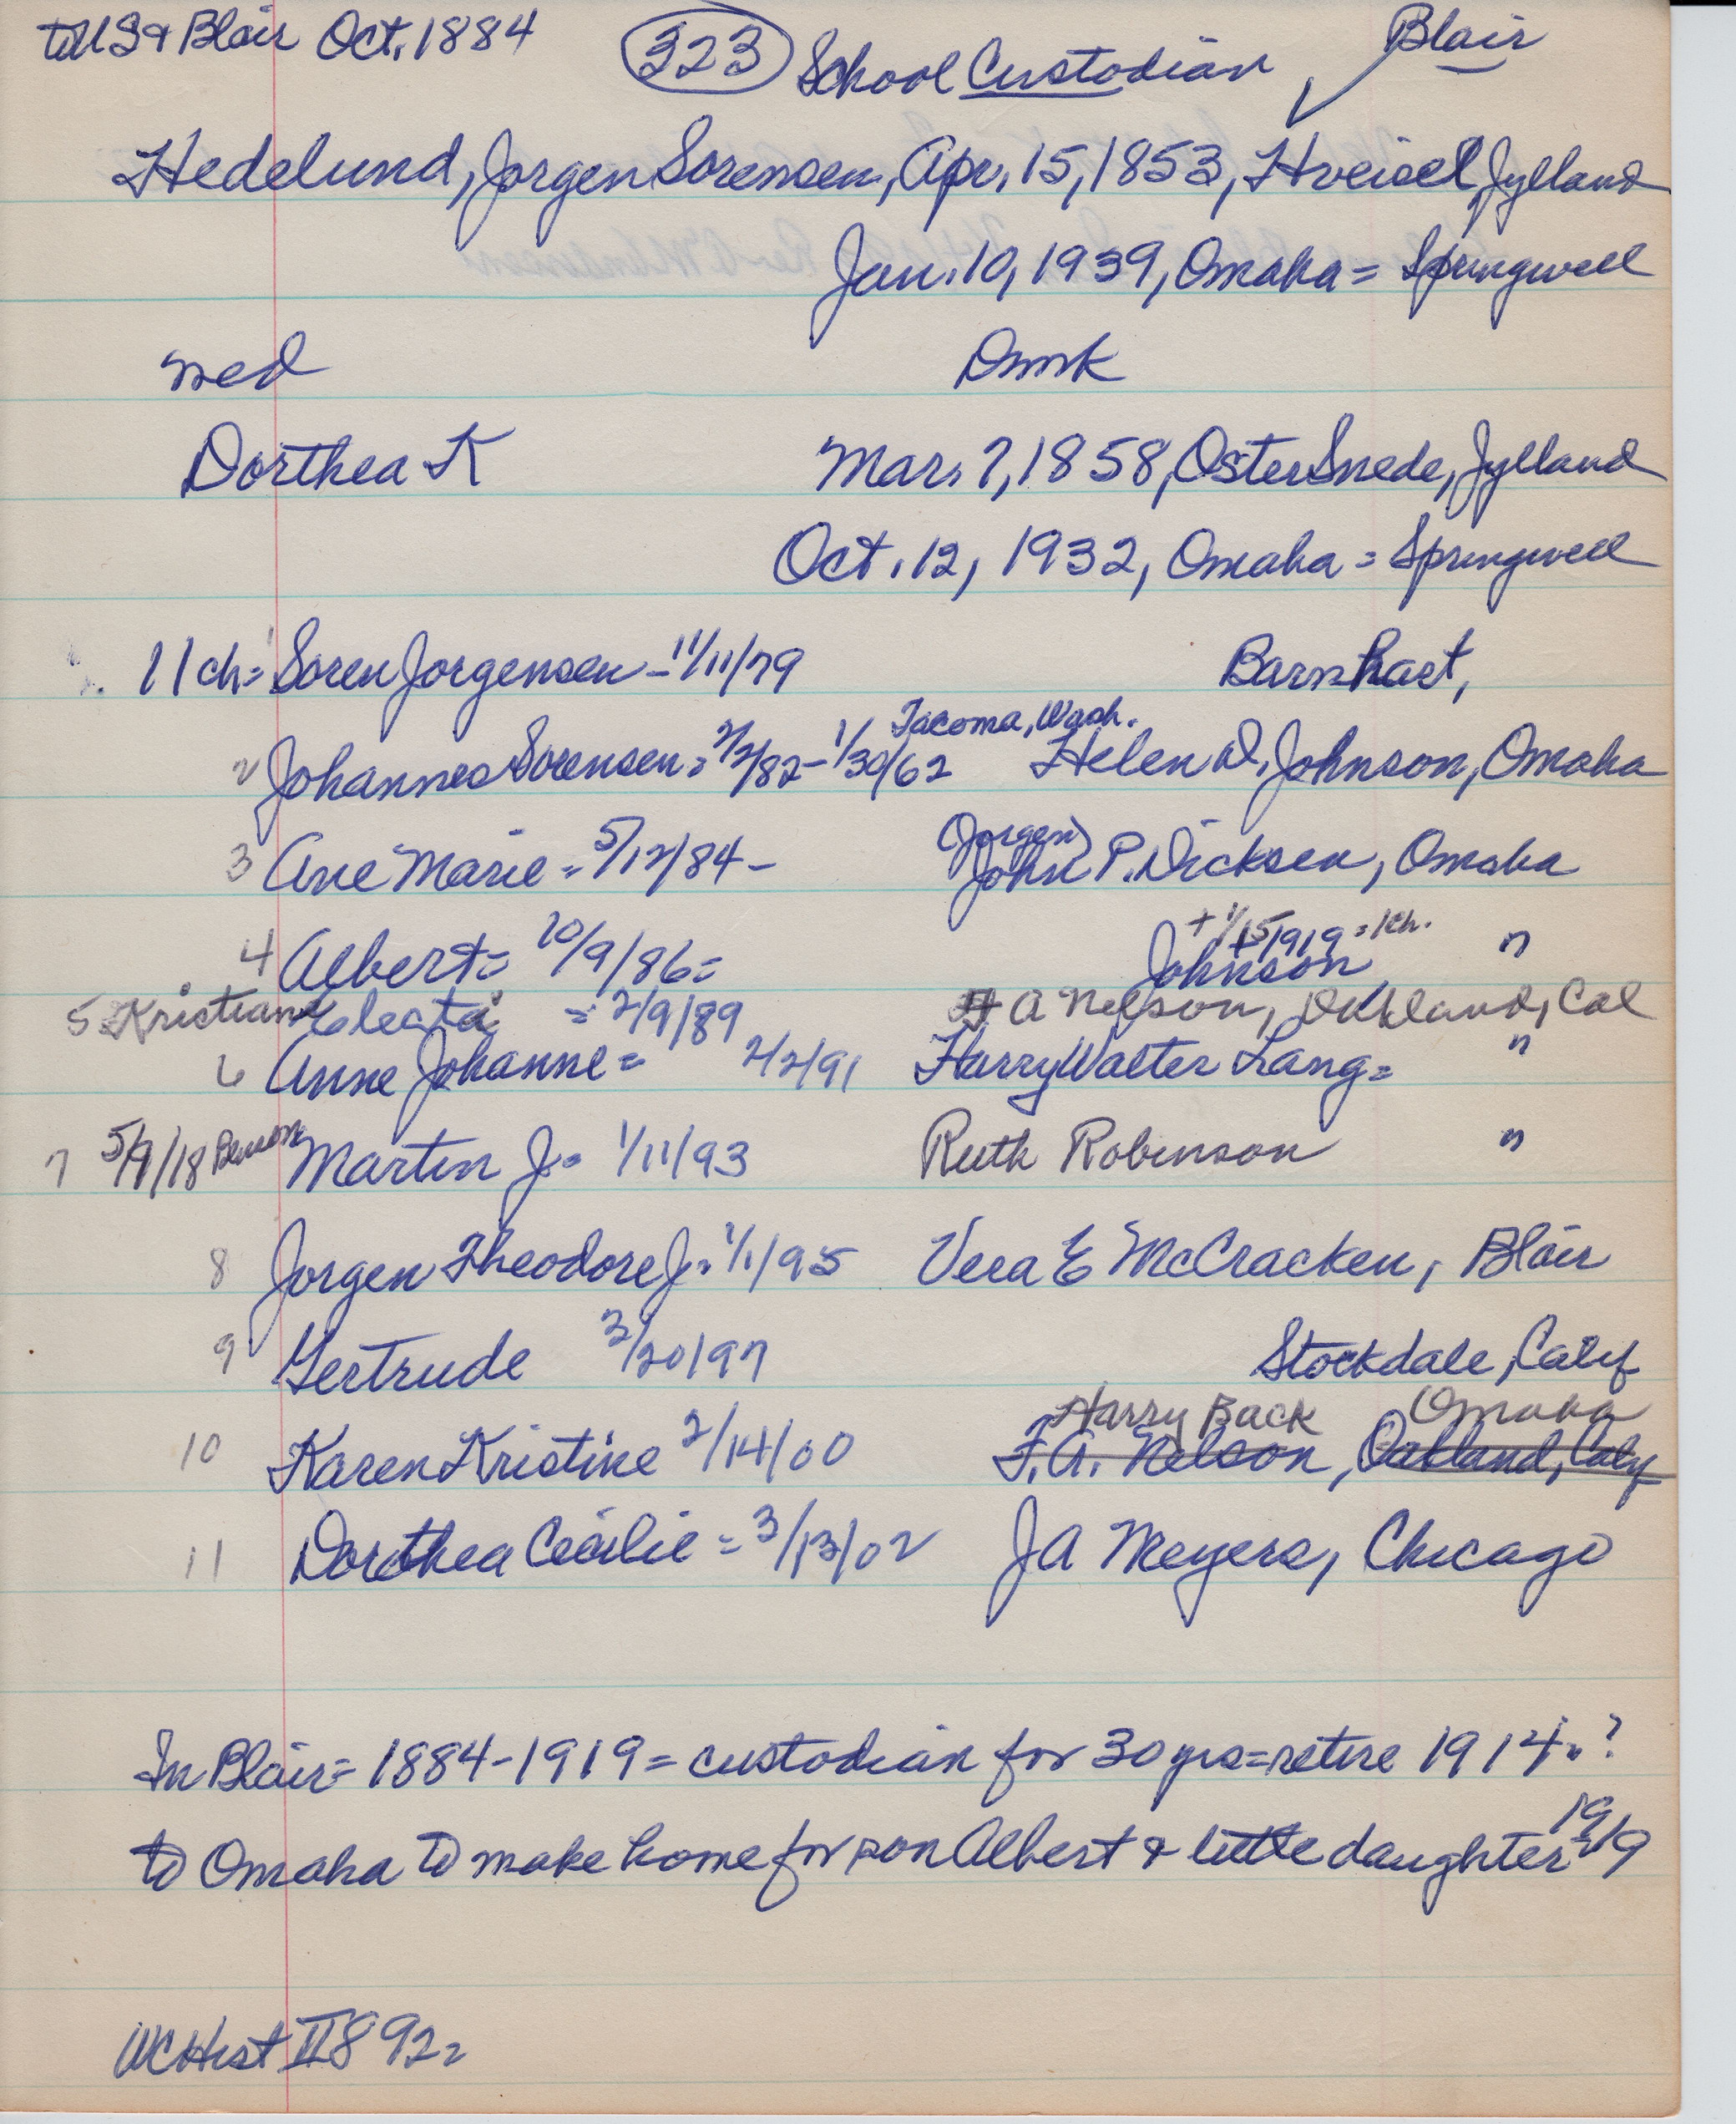 to US & Blair Oct. 1884 323 School Custodian ✓ Blair
Hedelund, Jorgen Sorensen, Apr. 15, 1853, Hveisel, Jylland
Jan. 10, 1939, Omaha = Springwell
med Dmrk
Dorthea K Mar. 7, 1858, Oster Snede, Jylland
Oct. 12, 1932, Omaha = Springwell
11 ch = 1 Soren Jorgensen - 11/11/79 Barnhart,
Tacoma, Wash.
2 Johannes Sorensen = 2/2/82 - 1/30/62 Helen D. Johnson, Omaha
(Jorgen)
3 Ane Marie = 5/12/84 - John P. Dicksen, Omaha
+ 1/15/1919 = 1 ch.
4 Albert = 10/9/86 = Johnson "
5 Kristiane Electa = 2/9/89 A Nelson, Oakland, Cal
6 Anne Johanne = 2/2/91 Harry Walter Lang = "
7 5/9/18 Benson Martin J = 1/11/93 Ruth Robinson "
8 Jorgen Theodore J = 1/1/95 Vera E McCracken, Blair
9 Gertrude 3/20/97 Stockdale, Calif
Harry Back Omaha
10 Karen Kristine 2/14/00 F. A. Nelson, Oakland, Caly
11 Dorothea Cecilie = 3/13/02 J A Meyers, Chicago
In Blair = 1884-1919 = custodian for 30 yrs = retire 1914.?
to Omaha to make home for son Albert & little daughter 1919
WC Hist II 892=